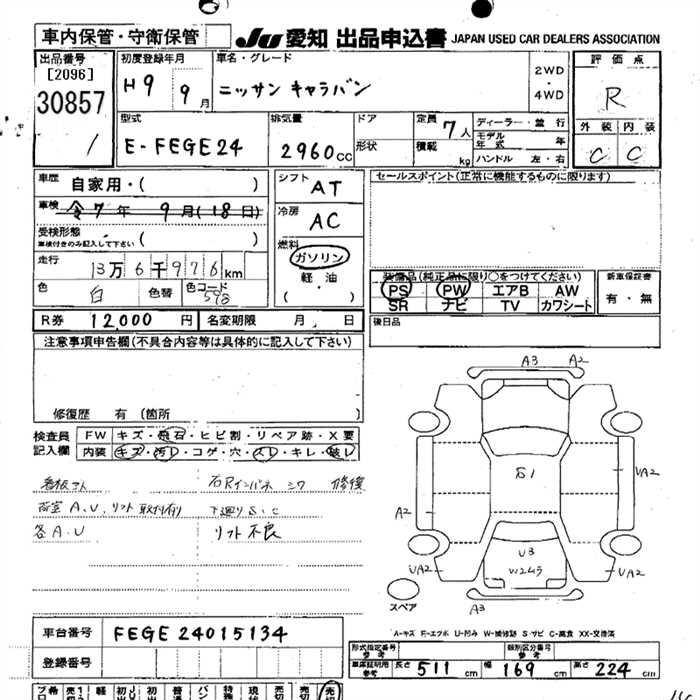 車内保管・守衛保管
JU 愛知 出品申込書 JAPAN USED CAR DEALERS ASSOCIATION
出品番号
[2096]
30857
初度登録年月
H9 9月
車名・グレード
ニッサン キャラバン
2WD
・
4WD
評価点
R
外装 内装
C C
型式
E-FEGE24
排気量
2960cc
ドア
形状
定員 7人
積載 kg
ディーラー・並行
モデル年式 年
ハンドル 左・右
車歴 自家用・( )
車検 令7年 9月(18日)
受検形態
車検付きのみ記入して下さい ( )
走行 13万6千976km
色 白 色替 色コード 593
シフト AT
冷房 AC
燃料
ガソリン
軽・油
( ・ )
セールスポイント(正常に機能するものに限ります)
装備品(純正品に限り○をつけてください)
PS PW エアB AW
SR ナビ TV カワシート
新車保証書
有・無
R券 12,000円 名変期限 月 日
後日品
注意事項申告欄(不具合内容等は具体的に記入して下さい)
修復歴 有(箇所 )
検査員
記入欄
FW キズ・飛石・ヒビ割・リペア跡・X要
内装 キズ・汚レ・コゲ・穴・スレ・キレ・破レ
看板さん
荷室A.U.リフト取付有り
各A.U
右Rインパネ シワ 修復
下廻りS.C
リフト不良
A3 A2
S1
UA2
A2
U3
W2ムラ
UA2
UA2
A3
スペア
A-キズ E-エクボ U-凹み W-補修跡 S-サビ C-腐食 XX-交換済
車台番号 FEGE24015134
登録番号
型式指定番号
参考
類別区分番号
参考
車庫証明用
参考
長さ 511cm 幅 169cm 高さ 224cm